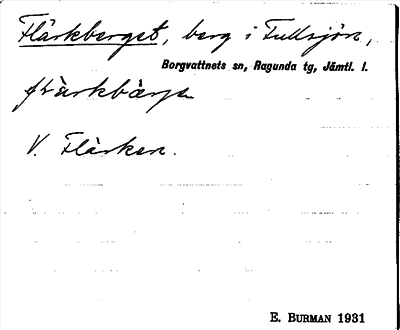 Flärkberget, berg i Fullsjön,
Borgvattnets sn, Ragunda tg, Jämtl. l.
V. Flärken.
E. BURMAN 1931